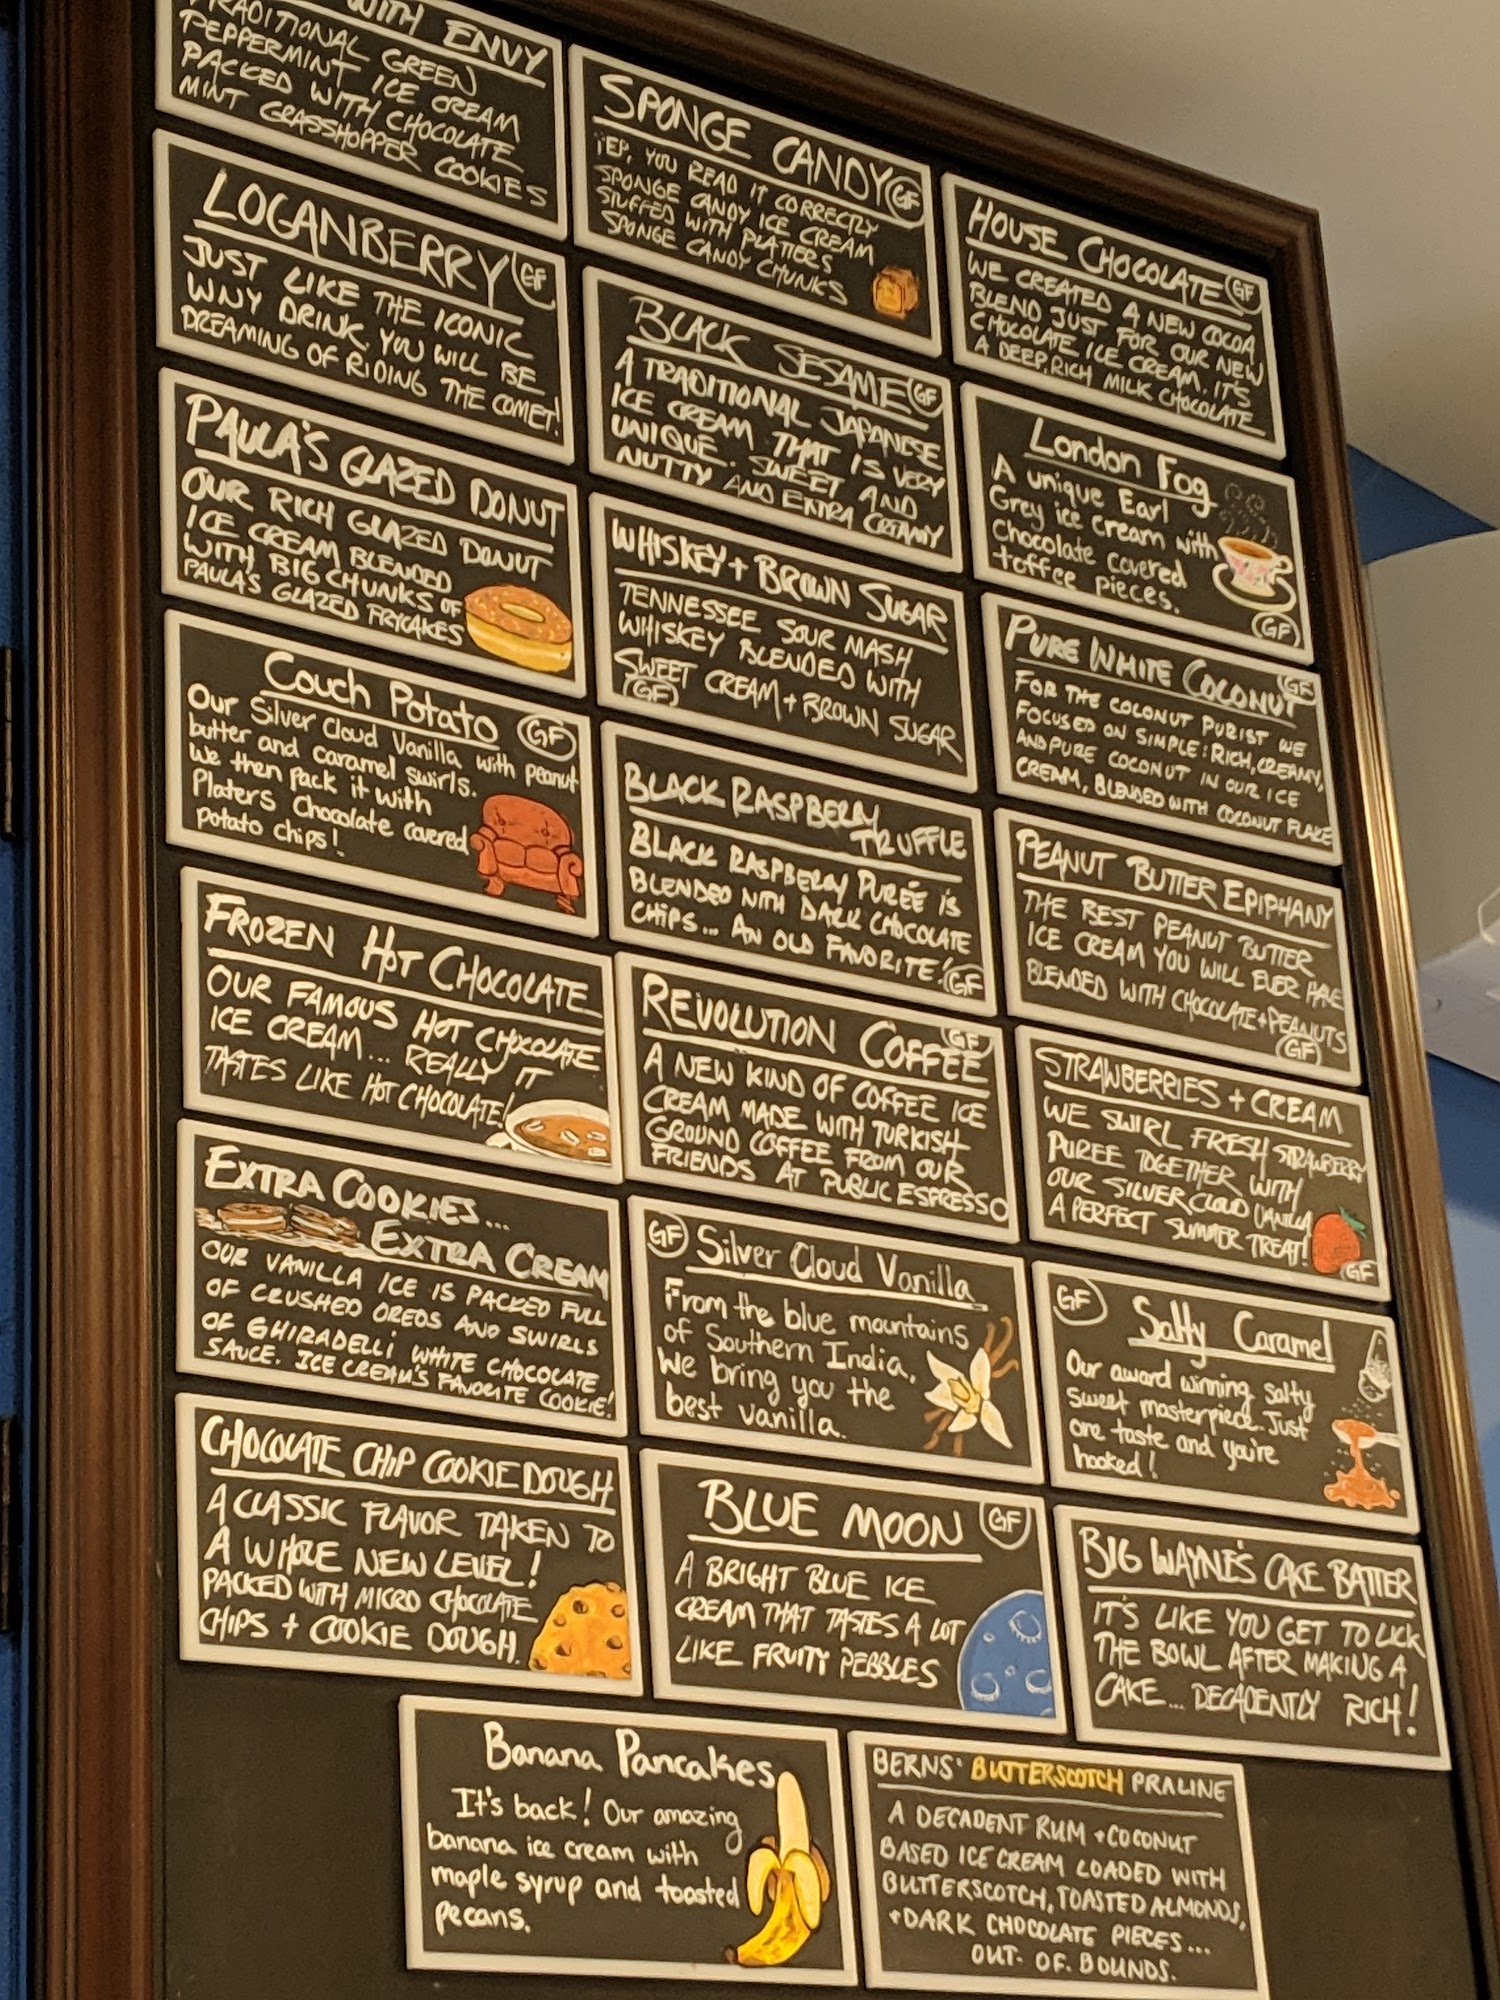 WITH ENVY
TRADITIONAL GREEN
PEPPERMINT ICE CREAM
PACKED WITH CHOCOLATE
MINT GRASSHOPPER COOKIES
LOGANBERRY GF
JUST LIKE THE ICONIC
WNY DRINK. YOU WILL BE
DREAMING OF RIDING THE COMET!
PAULA'S GLAZED DONUT
OUR RICH GLAZED DONUT
ICE CREAM BLENDED
WITH BIG CHUNKS OF
PAULA'S GLAZED FRYCAKES
Couch Potato GF
Our Silver Cloud Vanilla with peanut
butter and caramel swirls.
We then pack it with
Platers Chocolate covered
potato chips!
FROZEN HOT CHOCOLATE
OUR FAMOUS HOT CHOCOLATE
ICE CREAM... REALLY IT
TASTES LIKE HOT CHOCOLATE!
EXTRA COOKIES...
EXTRA CREAM
OUR VANILLA ICE IS PACKED FULL
OF CRUSHED OREOS AND SWIRLS
OF GHIRADELLI WHITE CHOCOLATE
SAUCE. ICE CREAM'S FAVORITE COOKIE!
CHOCOLATE CHIP COOKIE DOUGH
A CLASSIC FLAVOR TAKEN TO
A WHOLE NEW LEVEL!
PACKED WITH MICRO CHOCOLATE
CHIPS + COOKIE DOUGH.
SPONGE CANDY GF
YEP, YOU READ IT CORRECTLY
SPONGE CANDY ICE CREAM
STUFFED WITH PLATTERS
SPONGE CANDY CHUNKS
BLACK SESAME GF
A TRADITIONAL JAPANESE
ICE CREAM THAT IS VERY
UNIQUE. SWEET AND
NUTTY AND EXTRA CREAMY
WHISKEY + BROWN SUGAR
TENNESSEE SOUR MASH
WHISKEY BLENDED WITH
SWEET CREAM + BROWN SUGAR
GF
BLACK RASPBERRY
TRUFFLE
BLACK RASPBERRY PURÉE IS
BLENDED WITH DARK CHOCOLATE
CHIPS... AN OLD FAVORITE! GF
REVOLUTION COFFEE GF
A NEW KIND OF COFFEE ICE
CREAM MADE WITH TURKISH
GROUND COFFEE FROM OUR
FRIENDS AT PUBLIC ESPRESSO
GF Silver Cloud Vanilla
From the blue mountains
of Southern India.
We bring you the
best vanilla.
BLUE MOON GF
A BRIGHT BLUE ICE
CREAM THAT TASTES A LOT
LIKE FRUITY PEBBLES
HOUSE CHOCOLATE GF
WE CREATED A NEW COCOA
BLEND JUST FOR OUR NEW
CHOCOLATE ICE CREAM. IT'S
A DEEP, RICH MILK CHOCOLATE
London Fog
A unique Earl
Grey ice cream with
Chocolate covered
toffee pieces.
GF
PURE WHITE COCONUT GF
FOR THE COCONUT PURIST WE
FOCUSED ON SIMPLE: RICH, CREAMY,
AND PURE COCONUT IN OUR ICE
CREAM, BLENDED WITH COCONUT FLAKE
PEANUT BUTTER EPIPHANY
THE BEST PEANUT BUTTER
ICE CREAM YOU WILL EVER HAVE
BLENDED WITH CHOCOLATE + PEANUTS
GF
STRAWBERRIES + CREAM
WE SWIRL FRESH STRAWBERRY
PUREE TOGETHER WITH
OUR SILVER CLOUD VANILLA
A PERFECT SUMMER TREAT!
GF
GF Salty Caramel
Our award winning salty
sweet masterpiece. Just
one taste and you're
hooked!
BIG WAYNE'S CAKE BATTER
IT'S LIKE YOU GET TO LICK
THE BOWL AFTER MAKING A
CAKE... DECADENTLY RICH!
Banana Pancakes
It's back! Our amazing
banana ice cream with
maple syrup and toasted
pecans.
BERNS' BUTTERSCOTCH PRALINE
A DECADENT RUM + COCONUT
BASED ICE CREAM LOADED WITH
BUTTERSCOTCH, TOASTED ALMONDS,
+ DARK CHOCOLATE PIECES...
OUT. OF. BOUNDS.